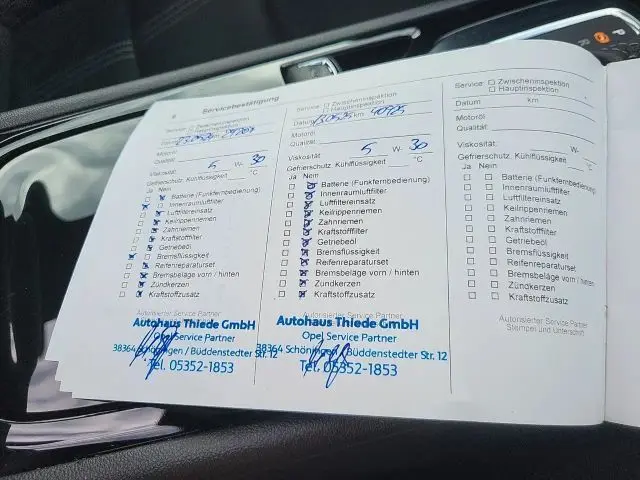 Servicebestätigung
Service: Zwischeninspektion
Hauptinspektion
Datum km
Motoröl
Qualität:
Viskosität: 5 W- 30
Gefrierschutz, Kühlflüssigkeit °C
Ja Nein
Batterie (Funkfernbedienung)
Innenraumluftfilter
Luftfiltereinsatz
Keilrippenriemen
Zahnriemen
Kraftstofffilter
Getriebeöl
Bremsflüssigkeit
Reifenreparaturset
Bremsbeläge vorn / hinten
Zündkerzen
Kraftstoffzusatz
Autorisierter Service Partner
Autohaus Thiede GmbH
Opel Service Partner
38364 Schöningen / Büddenstedter Str. 12
Tel. 05352-1853
Service: Zwischeninspektion
Hauptinspektion
Datum km 40925
Motoröl
Qualität:
Viskosität: 5 W- 30
Gefrierschutz, Kühlflüssigkeit °C
Ja Nein
Batterie (Funkfernbedienung)
Innenraumluftfilter
Luftfiltereinsatz
Keilrippenriemen
Zahnriemen
Kraftstofffilter
Getriebeöl
Bremsflüssigkeit
Reifenreparaturset
Bremsbeläge vorn / hinten
Zündkerzen
Kraftstoffzusatz
Autorisierter Service Partner
Autohaus Thiede GmbH
Opel Service Partner
38364 Schöningen / Büddenstedter Str. 12
Tel. 05352-1853
Service: Zwischeninspektion
Hauptinspektion
Datum km
Motoröl
Qualität:
Viskosität: W-
Gefrierschutz, Kühlflüssigkeit °C
Ja Nein
Batterie (Funkfernbedienung)
Innenraumluftfilter
Luftfiltereinsatz
Keilrippenriemen
Zahnriemen
Kraftstofffilter
Getriebeöl
Bremsflüssigkeit
Reifenreparaturset
Bremsbeläge vorn / hinten
Zündkerzen
Kraftstoffzusatz
Autorisierter Service Partner
Stempel und Unterschrift
P
R